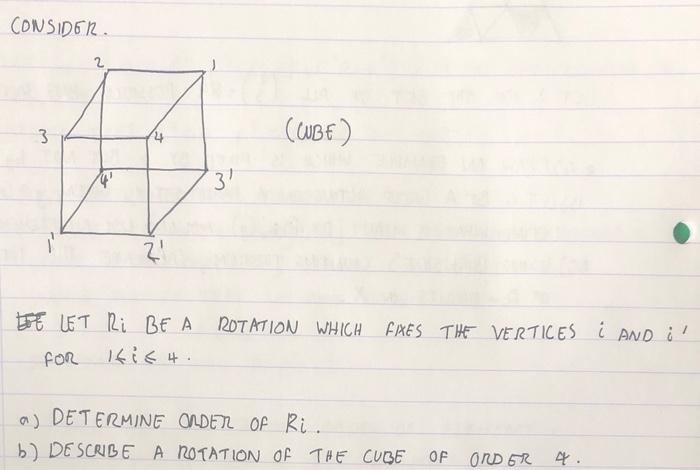 CONSIDER.
2 1
3 4
(CUBE)
4' 3'
1' 2'
LET Ri BE A ROTATION WHICH FIXES THE VERTICES i AND i'
FOR 1 ≤ i ≤ 4.
a) DETERMINE ORDER OF Ri.
b) DESCRIBE A ROTATION OF THE CUBE OF ORDER 4.